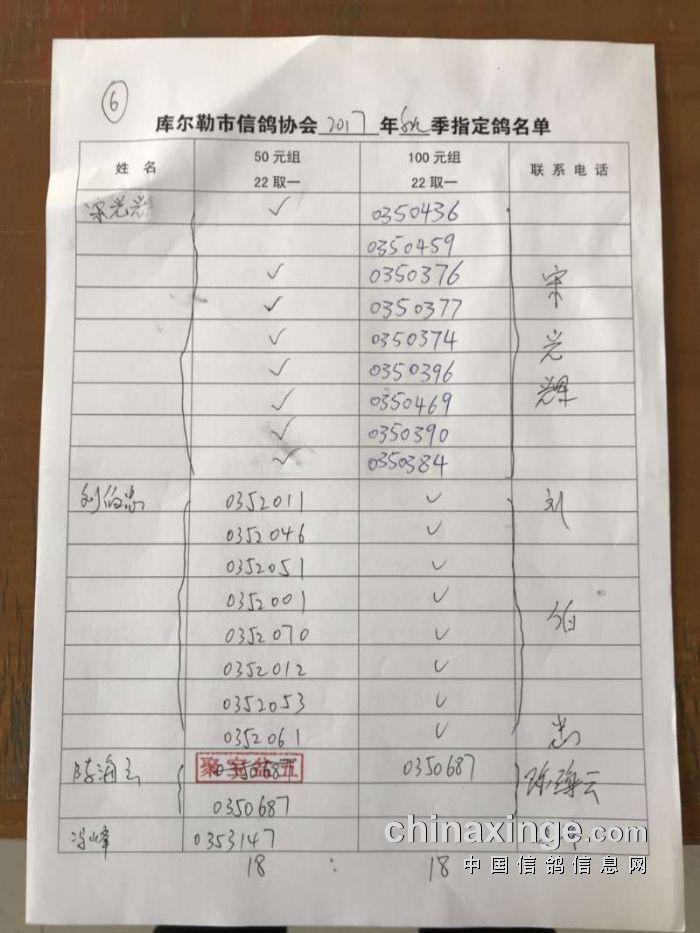 ⑥
库尔勒市信鸽协会 2017 年 秋 季指定鸽名单
姓 名 50元组 22取一 100元组 22取一 联系电话
宋光辉 ✓ 0350436
0350459
✓ 0350376 宋
✓ 0350377
✓ 0350374 光
✓ 0350396
✓ 0350469 辉
✓ 0350390
✓ 0350384
刘伯忠 0352011 ✓ 刘
0352046 ✓
0352051 ✓
0352001 ✓ 伯
0352070 ✓
0352012 ✓
0352053 ✓
0352061 ✓
陈海云 0350687 0350687 陈海云
0350687
冯峰 0353147
18 : 18
chinaxinge.com
中国信鸽信息网